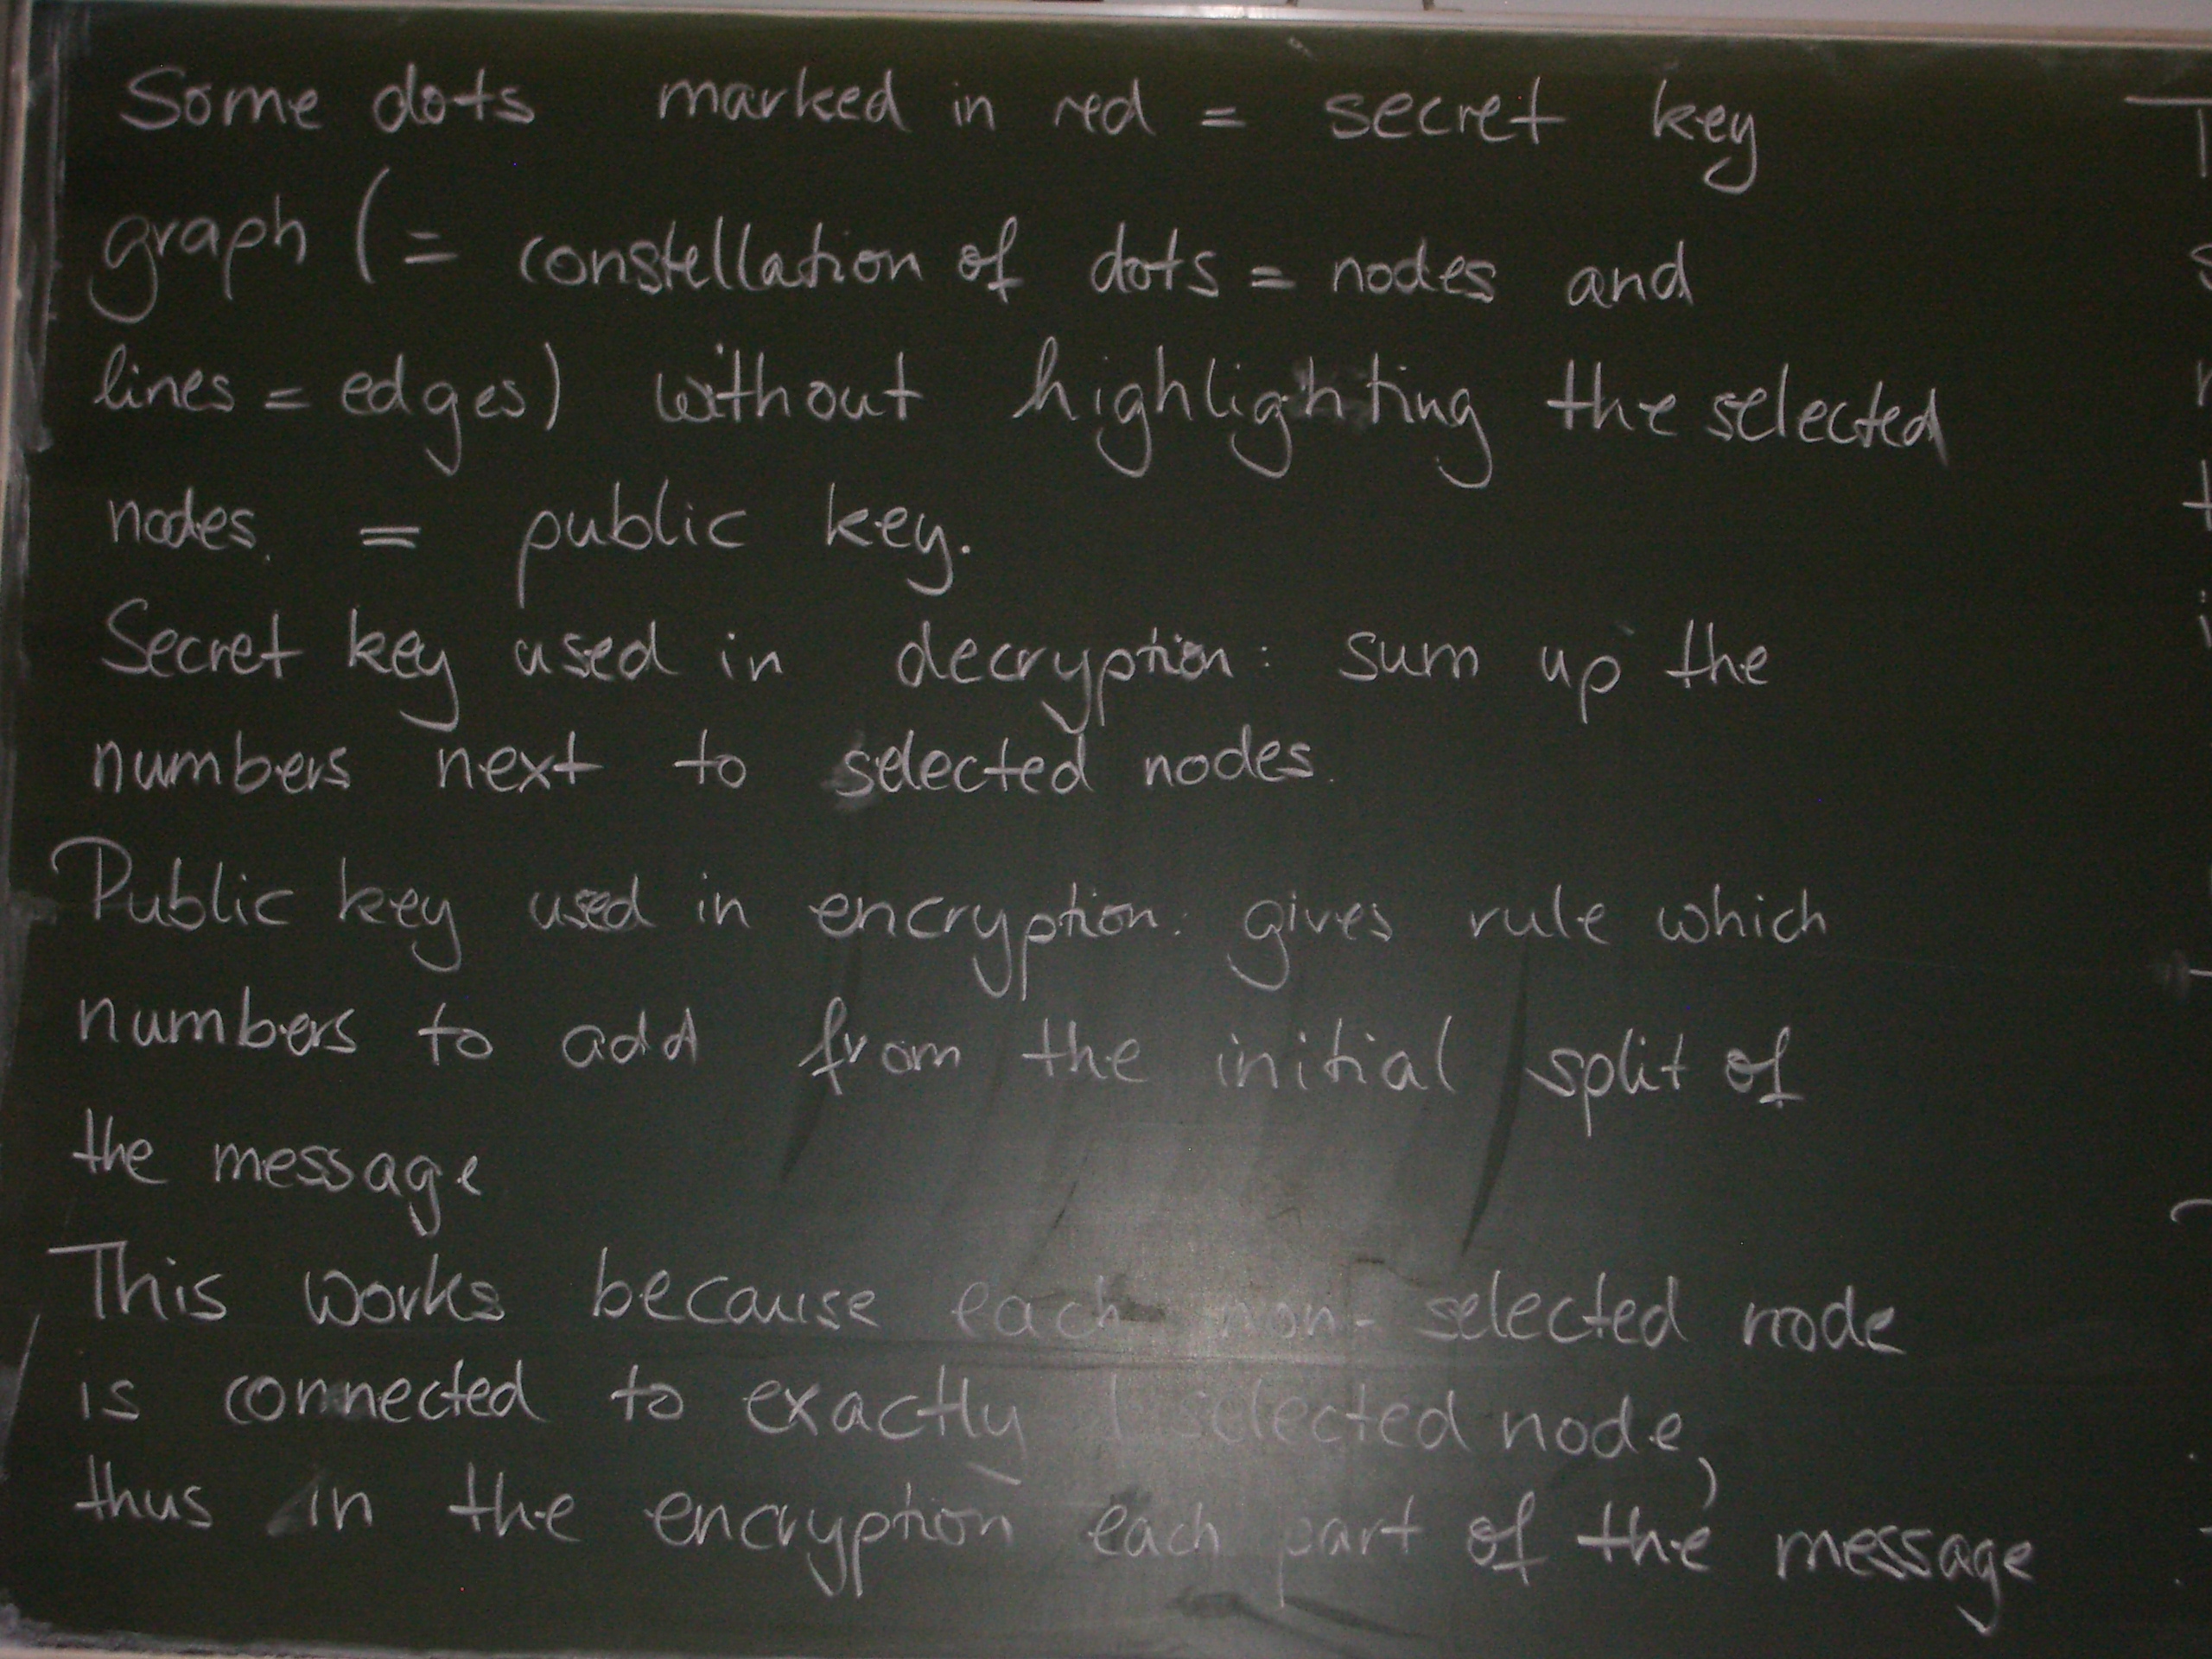 Some dots marked in red = secret key
graph (= constellation of dots = nodes and
lines = edges) without highlighting the selected
nodes = public key.
Secret key used in decryption: sum up the
numbers next to selected nodes.
Public key used in encryption: gives rule which
numbers to add from the initial split of
the message
This works because each non-selected node
is connected to exactly 1 selected node,
thus in the encryption each part of the message